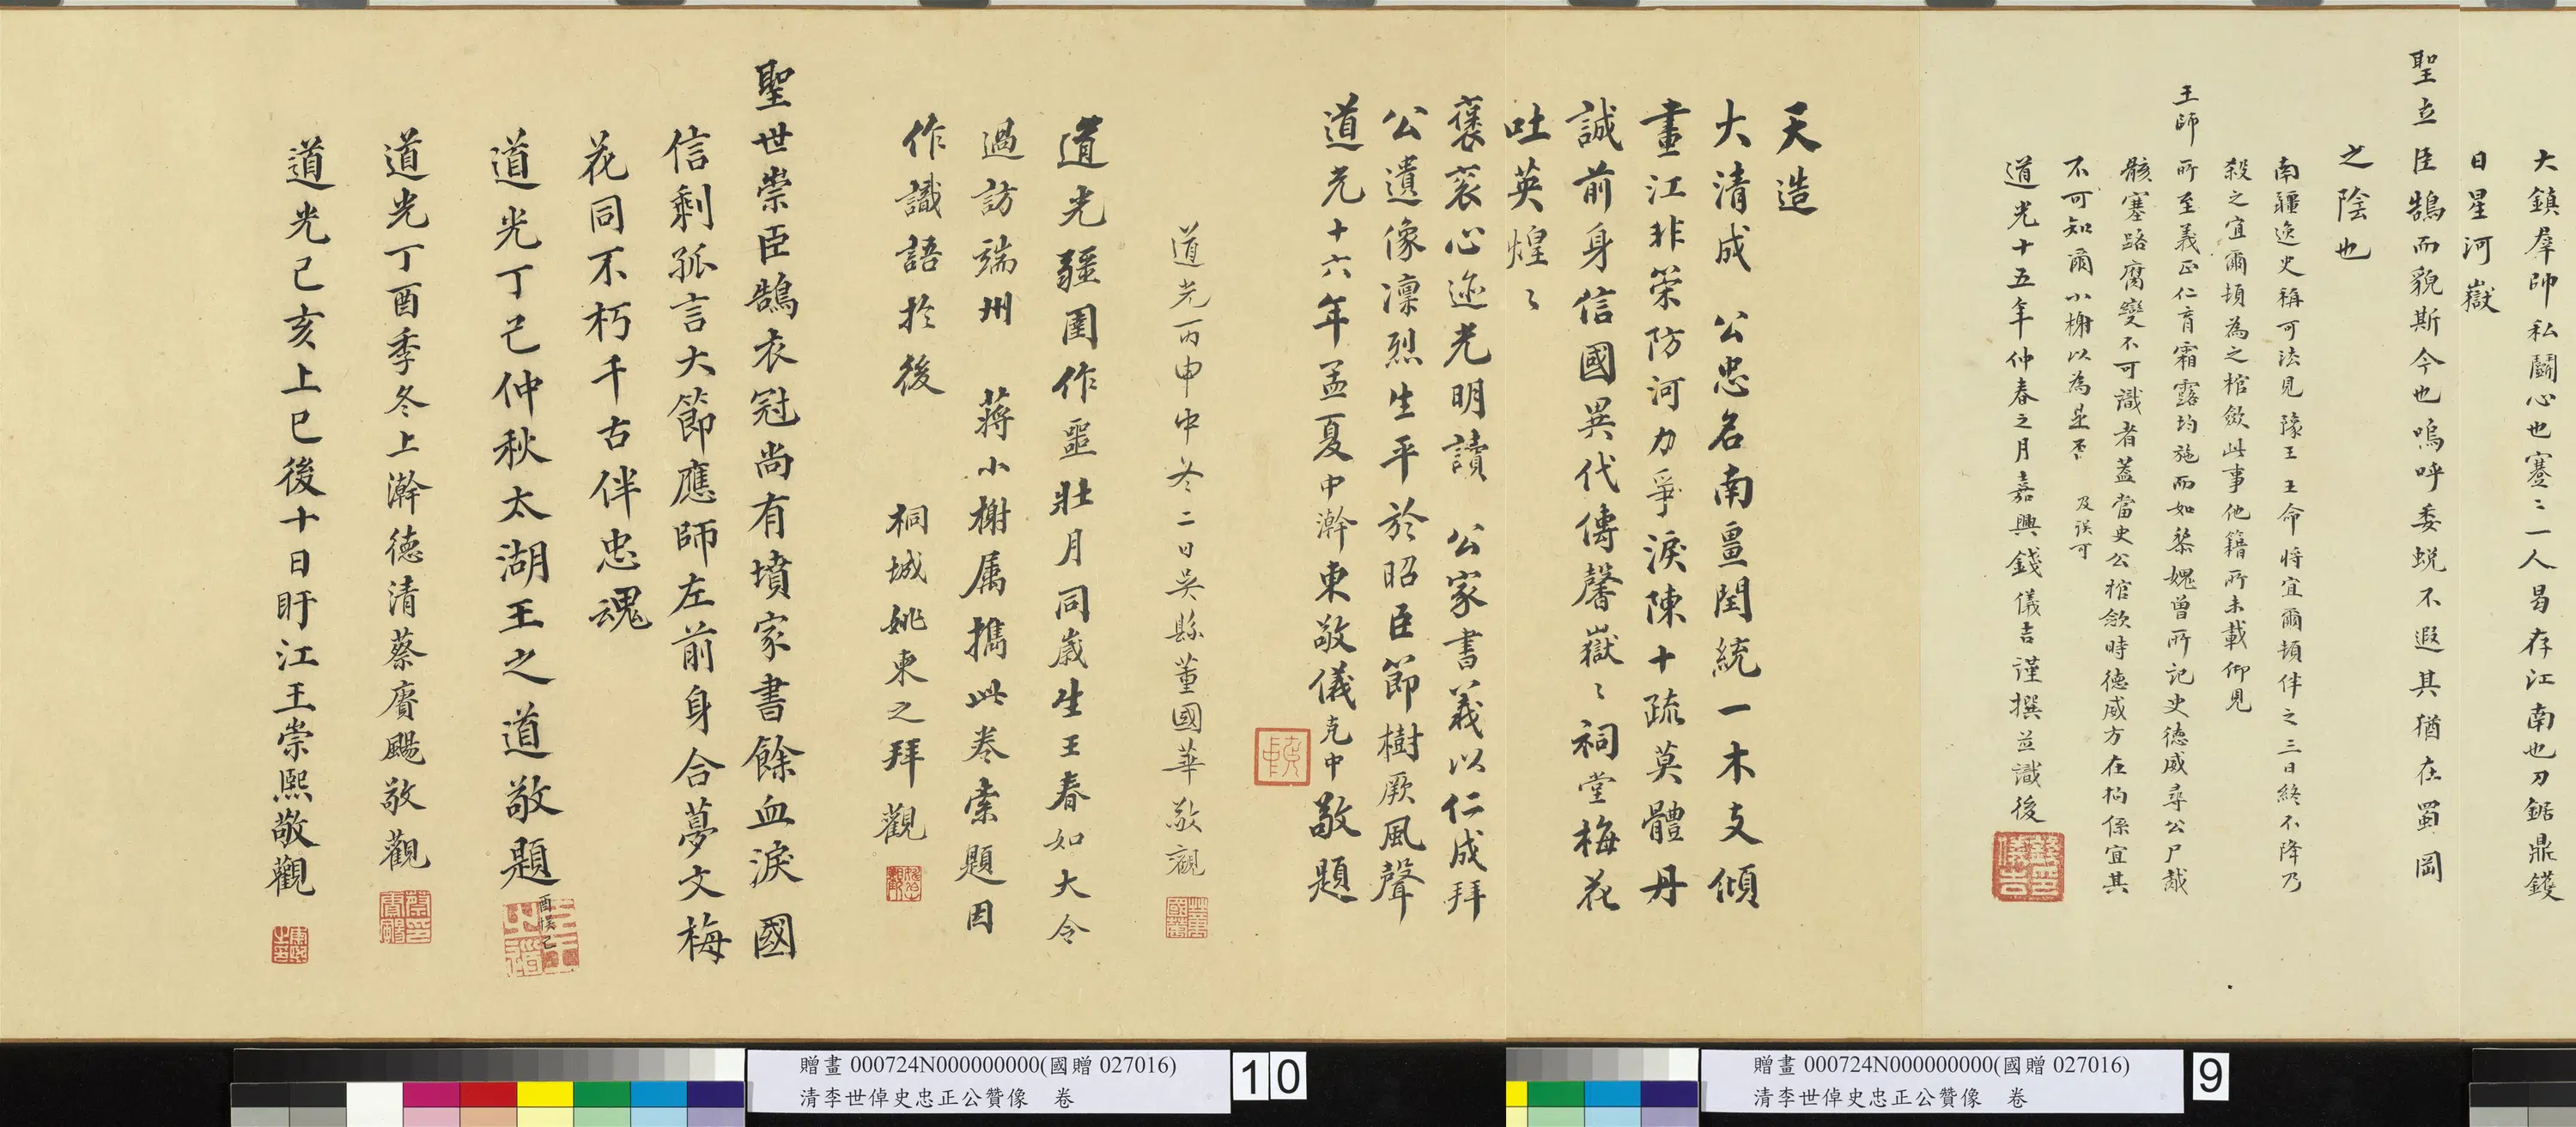 大鎮羣帥私鬭心也蹇〻一人曷存江南也刀鋸鼎鑊
日星河嶽
聖立臣鵠而貌斯今也嗚呼委蛻不遐其猶在蜀岡
之陰也
南疆逸史稱可法見豫王王命將宜爾頓伴之三日終不降乃
殺之宜爾頓為之棺斂此事他籍所未載仰見
王師所至義正仁育霜露均施而如棨媿曾所記史德威尋公尸
骸塞路腐變不可識者蓋當史公棺斂時德威方在拘係宜其
不可知爾小榭以為是否 及误可
道光十五年仲春之月嘉興錢儀吉謹撰並識後
錢儀吉印
天造
大清成 公忠名南畺閏統一木支傾
畫江非策防河力爭淚陳十疏莫體丹
誠前身信國異代傳馨嶽〻祠堂梅花
吐英煌〻
褒袞心迹光明讀 公家書義以仁成拜
公遺像凜烈生平於昭臣節樹厥風聲
道光十六年孟夏中澣東敬儀克中敬題
克中
道光丙申中冬二日吳縣董國華敬觀
董國華
道光疆圉作噩壯月同歲生王春如大令
過訪端州 蔣小榭属攜此卷索題因
作識語於後 桐城姚柬之拜觀
聖世崇臣鵠衣冠尚有墳家書餘血淚 國
信剩孤言大節應師左前身合夢文梅
花同不朽千古伴忠魂
道光丁己仲秋太湖王之道敬題
酉误己
道光丁酉季冬上澣德清蔡賡颺敬觀
蔡印賡颺
道光己亥上巳後十日盱江王崇熙敬觀
贈畫 000724N000000000(國贈 027016)
清李世倬史忠正公贊像 卷
10
贈畫 000724N000000000(國贈 027016)
清李世倬史忠正公贊像 卷
9